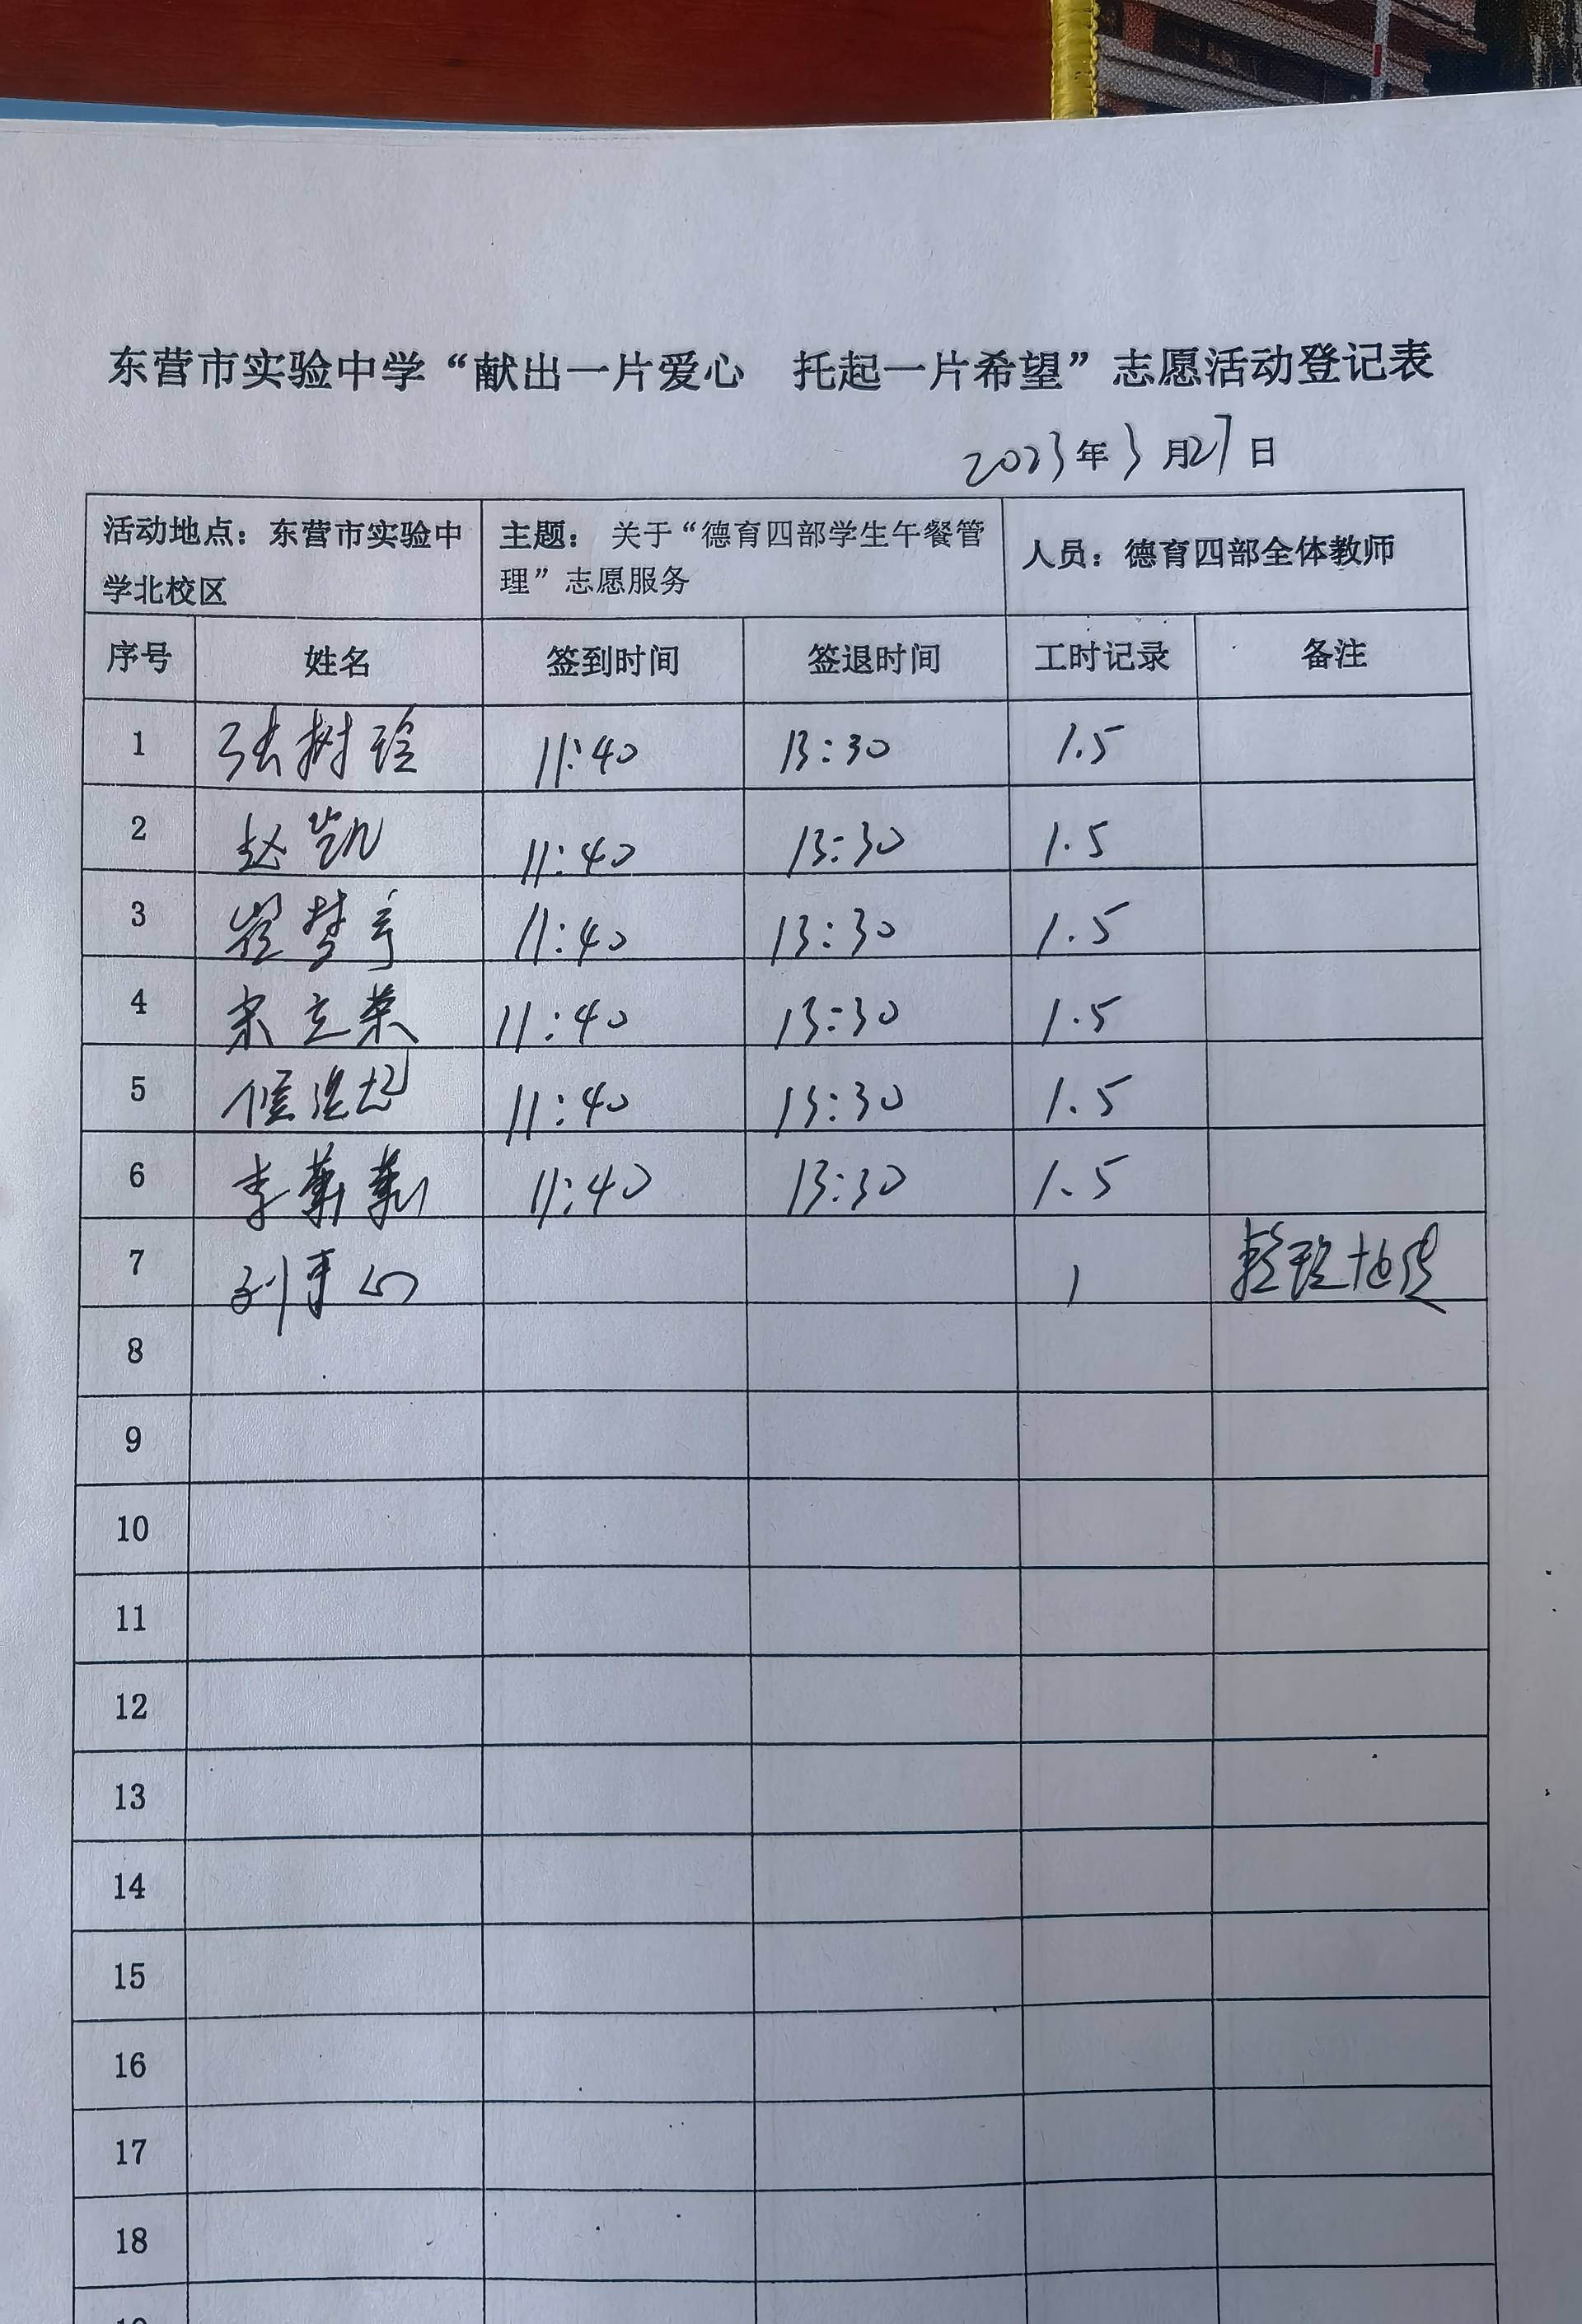 东营市实验中学“献出一片爱心 托起一片希望”志愿活动登记表
2023年3月27日
活动地点：东营市实验中学北校区 主题：关于“德育四部学生午餐管理”志愿服务 人员：德育四部全体教师
序号 姓名 签到时间 签退时间 工时记录 备注
1 张树玲 11:40 13:30 1.5
2 赵凯 11:40 13:30 1.5
3 崔梦宇 11:40 13:30 1.5
4 宋立荣 11:40 13:30 1.5
5 11:40 13:30 1.5
6 李 11:40 13:30 1.5
7 刘 1 整理
8
9
10
11
12
13
14
15
16
17
18